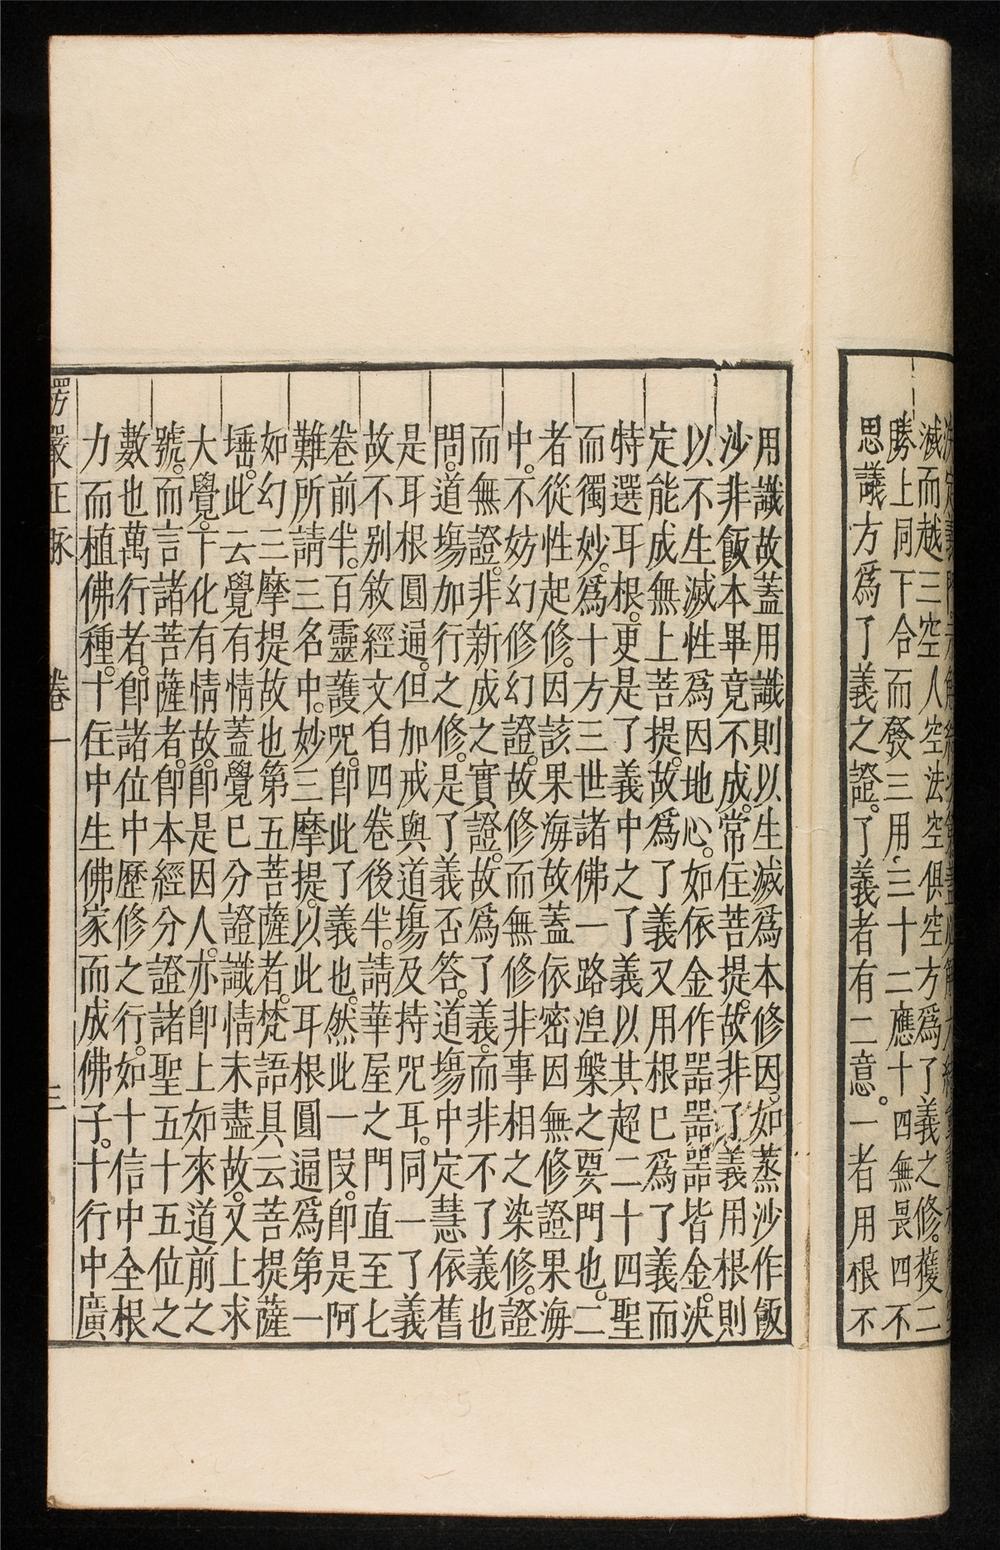 滅而越三空人空法空俱空方爲了義之修。獲二
勝上同下合而發三用三十二應十四無畏四不
思議方爲了義之證。了義者有二意。一者用根不
用識故蓋用識則以生滅爲本修因。如蒸沙作飯
沙非飯本畢竟不成。常住菩提。故非了義用根則
以不生滅性爲因地心。如依金作噐噐噐皆金。決
定能成無上菩提。故爲了義又用根巳爲了義而
特選耳根。更是了義中之了義以其超二十四聖
而獨妙。爲十方三世諸佛一路湼槃之要門也。二
者從性起修。因該果海故蓋依密因無修證果海
中。不妨幻修幻證。故修而無修非事相之染修。證
而無證。非新成之實證。故爲了義。而非不了義也
問。道塲加行之修。是了義否答。道塲中定慧依舊
是耳根圓通。但加戒與道塲及持咒耳。同一了義
故不别敘經文自四卷後半。請華屋之門直至七
卷前半。百靈護咒。卽此了義也。然此一叚。卽是阿
難所請三名中。妙三摩提。以此耳根圓通爲第一
如幻三摩提故也第五菩薩者。梵語具云菩提薩
埵。此云覺有情蓋覺巳分證識情未盡故。又上求
大覺。下化有情故。卽是因人。亦卽上如來道前之
號。而言諸菩薩者。卽本經分證諸聖五十五位之
數也萬行者。卽諸位中歷修之行。如十信中全根
力而植佛種。十住中生佛家而成佛子。十行中廣
楞嚴正脉 卷一 三